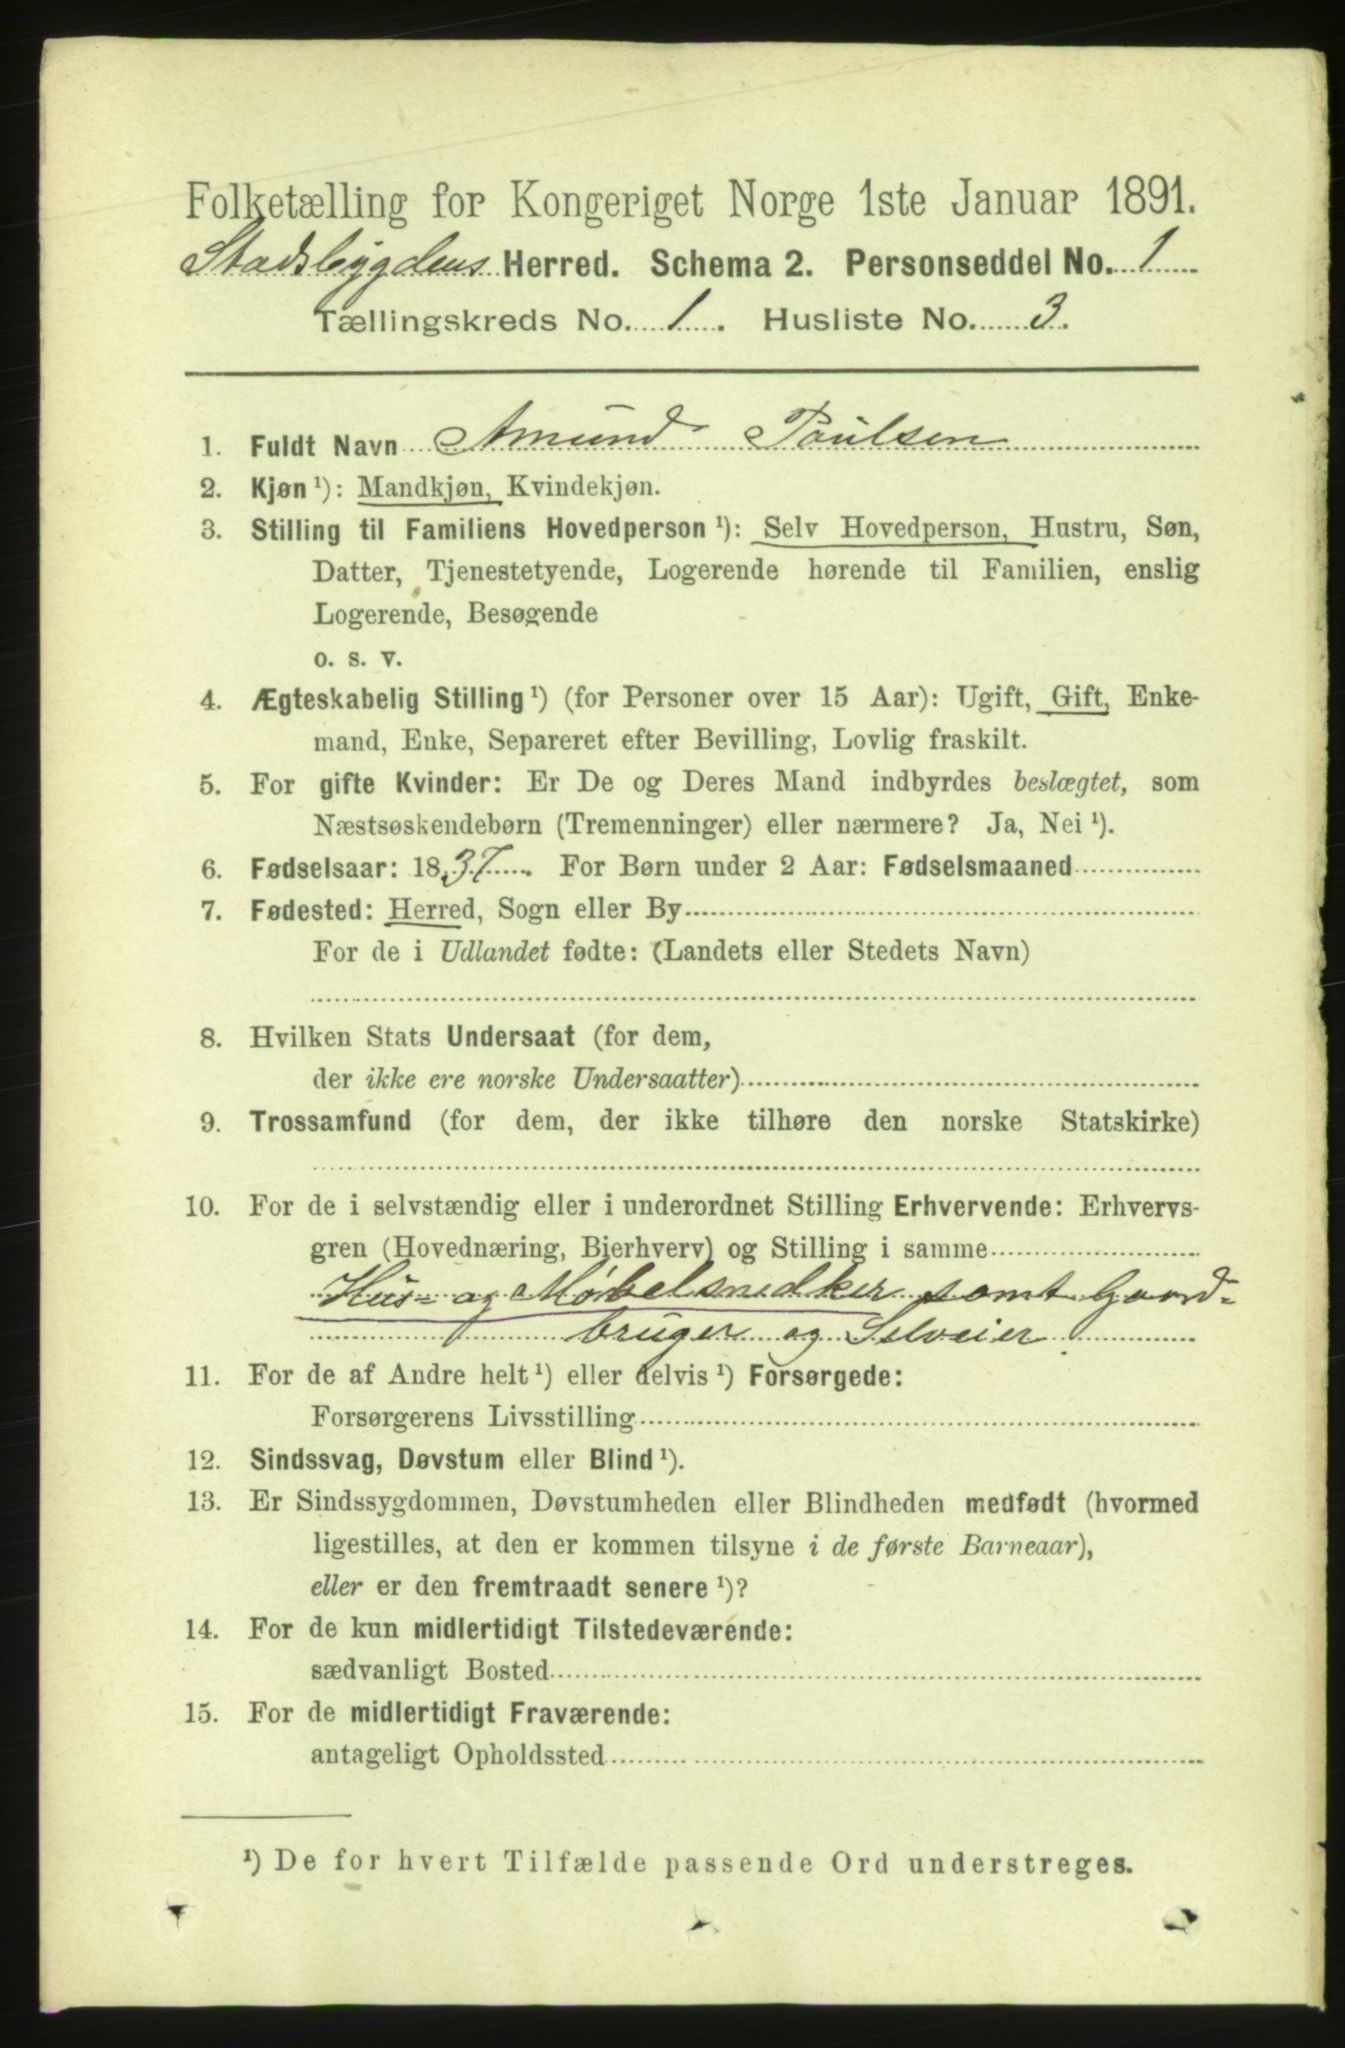 Folketælling for Kongeriget Norge 1ste Januar 1891.
Stadsbygdens Herred. Schema 2. Personseddel No. 1
Tællingskreds No. 1. Husliste No. 3.
1. Fuldt Navn Amund Paulsen
2. Kjøn¹): Mandkjøn, Kvindekjøn.
3. Stilling til Familiens Hovedperson¹): Selv Hovedperson, Hustru, Søn,
Datter, Tjenestetyende, Logerende hørende til Familien, enslig
Logerende, Besøgende
o. s. v.
4. Ægteskabelig Stilling¹) (for Personer over 15 Aar): Ugift, Gift, Enke-
mand, Enke, Separeret efter Bevilling, Lovlig fraskilt.
5. For gifte Kvinder: Er De og Deres Mand indbyrdes beslægtet, som
Næstsøskendebørn (Tremenninger) eller nærmere? Ja, Nei¹).
6. Fødselsaar: 1837. For Børn under 2 Aar: Fødselsmaaned
7. Fødested: Herred, Sogn eller By
For de i Udlandet fødte: (Landets eller Stedets Navn)
8. Hvilken Stats Undersaat (for dem,
der ikke ere norske Undersaatter)
9. Trossamfund (for dem, der ikke tilhøre den norske Statskirke)
10. For de i selvstændig eller i underordnet Stilling Erhvervende: Erhvervs-
gren (Hovednæring, Bierhverv) og Stilling i samme
Hus- og Møbelsnedker samt Gaard-
bruger og Selveier.
11. For de af Andre helt¹) eller delvis¹) Forsørgede:
Forsørgerens Livsstilling
12. Sindssvag, Døvstum eller Blind¹).
13. Er Sindssygdommen, Døvstumheden eller Blindheden medfødt (hvormed
ligestilles, at den er kommen tilsyne i de første Barneaar),
eller er den fremtraadt senere¹)?
14. For de kun midlertidigt Tilstedeværende:
sædvanligt Bosted
15. For de midlertidigt Fraværende:
antageligt Opholdssted
¹) De for hvert Tilfælde passende Ord understreges.